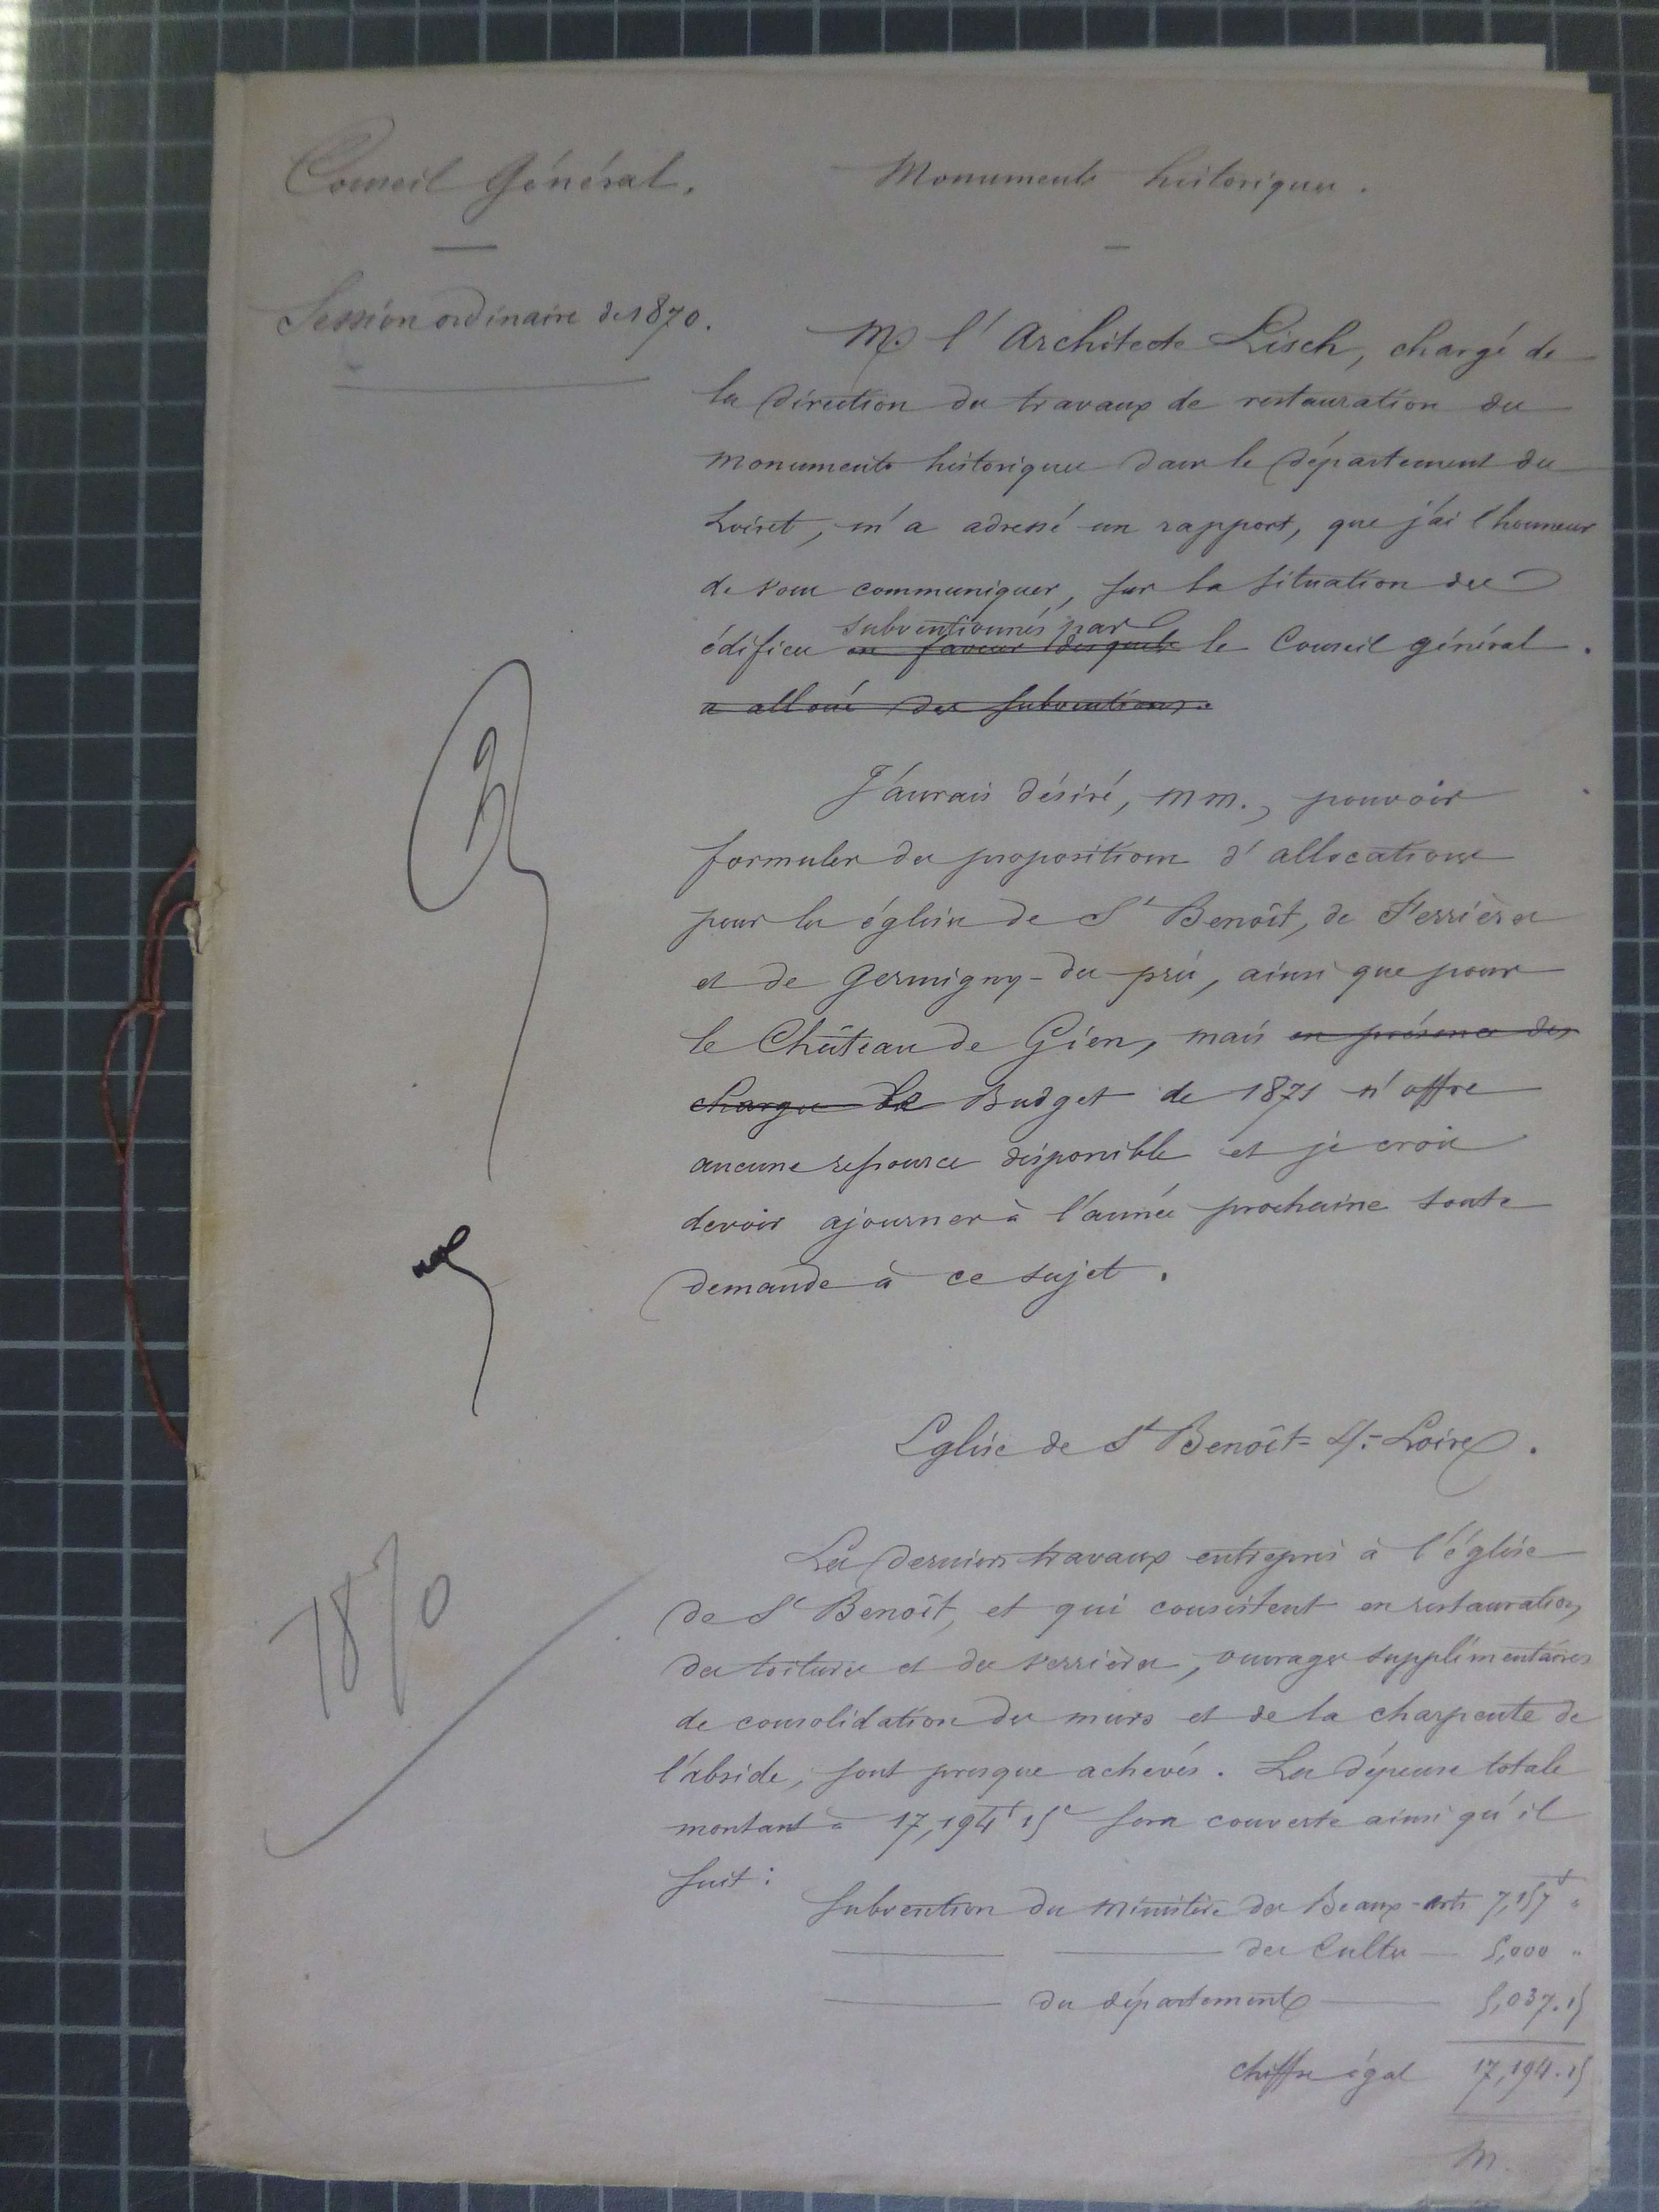 Conseil Général.
Monuments historiques.
Session ordinaire de 1870.
M. l'Architecte Lisch, chargé de
la direction des travaux de restauration des
monuments historiques dans le département du
Loiret, m'a adressé un rapport, que j'ai l'honneur
de vous communiquer, sur la situation des
subventionnés par
édifices en faveur desquels le Conseil général.
a alloué des subventions.
J'aurais désiré, MM., pouvoir
formuler des propositions d'allocations
pour les églises de St Benoît, de Ferrières
et de Germigny-des-prés, ainsi que pour
le Château de Gien, mais en présence des
charges le Budget de 1871 n'offre
aucune ressource disponible et je crois
devoir ajourner à l'année prochaine toute
demande à ce sujet.
Eglise de St Benoît-s/-Loire.
Les derniers travaux entrepris à l'église
de St Benoît, et qui consistent en restauration
des toitures et des verrières, ouvrages supplémentaires
de consolidation des murs et de la charpente de
l'abside, sont presque achevés. La dépense totale
montant à 17,194f 15c sera couverte ainsi qu'il
suit :
Subvention du Ministère des Beaux-arts 7,157f "
des Cultes 5,000 "
du département 5,037.15
chiffre égal 17,194.15
1870
M.